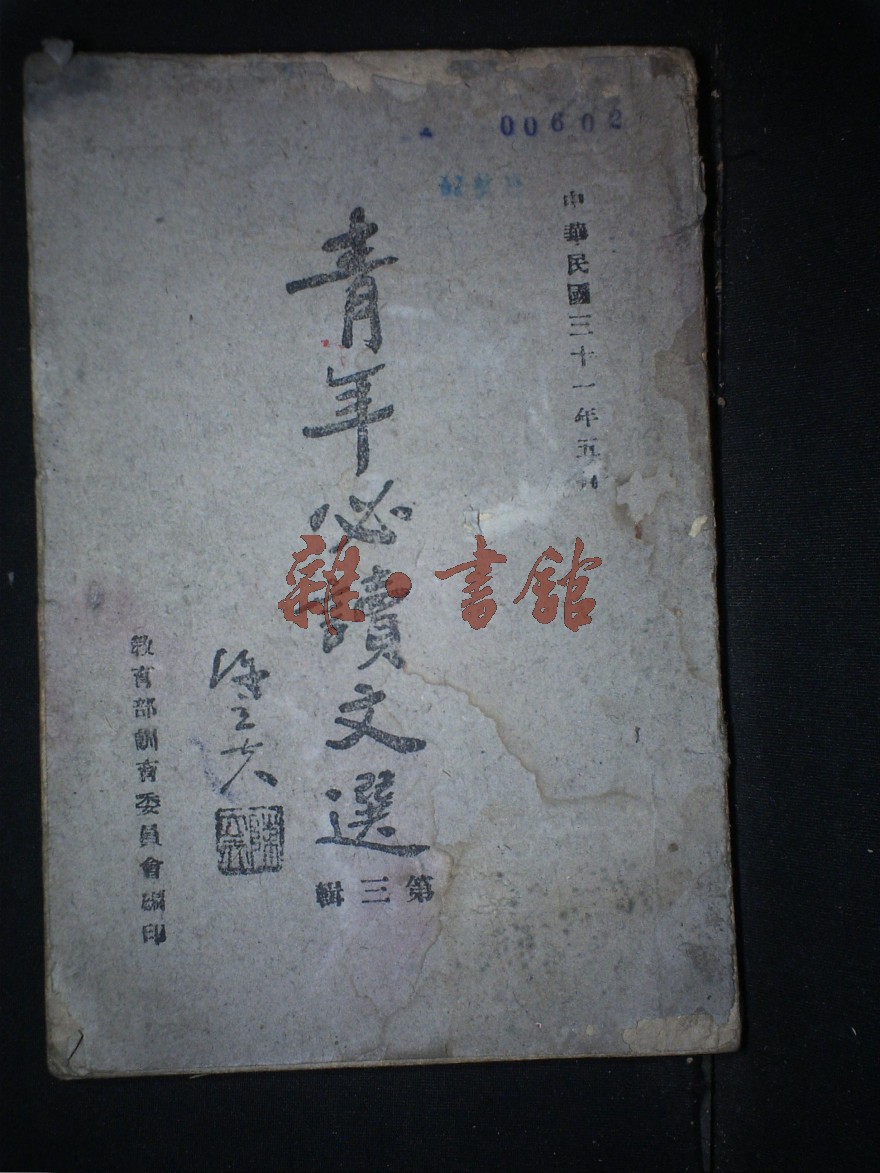 00602
中華民國三十一年五月
青年必讀文選
第三輯
陳立夫
教育部訓育委員會編印
雜·書館